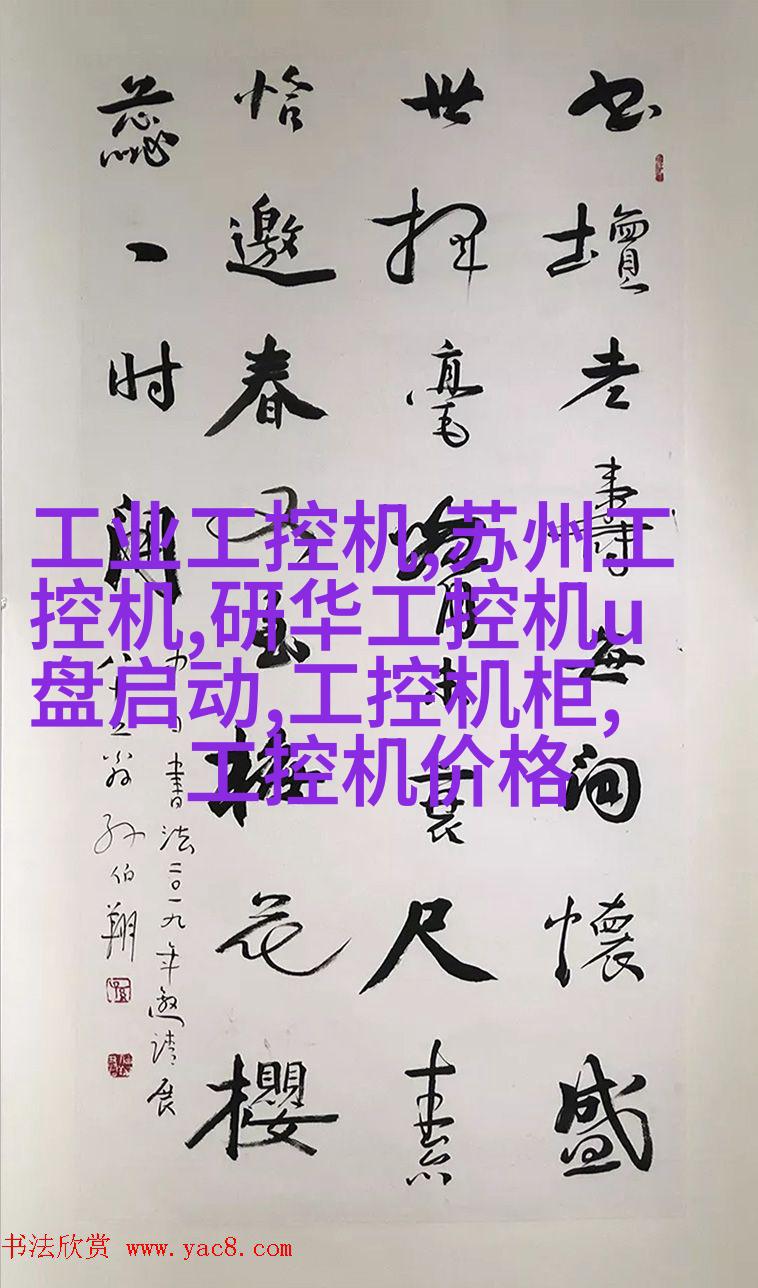 壇老壽懷盛
世揮毫未衰尺素
恰邀春花櫻
蕊一时開
中日書法二〇一九年邀請展
翁孙伯翔
工业工控机,苏州工
控机,研华工控机u
盘启动,工控机柜,
工控机价格
书法欣赏 www.yac8.com